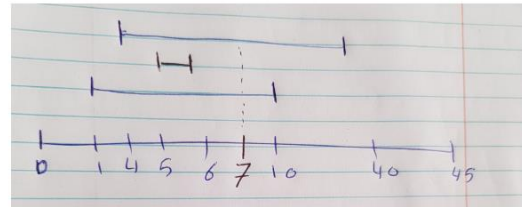 0 1 4 5 6 7 10 40 45